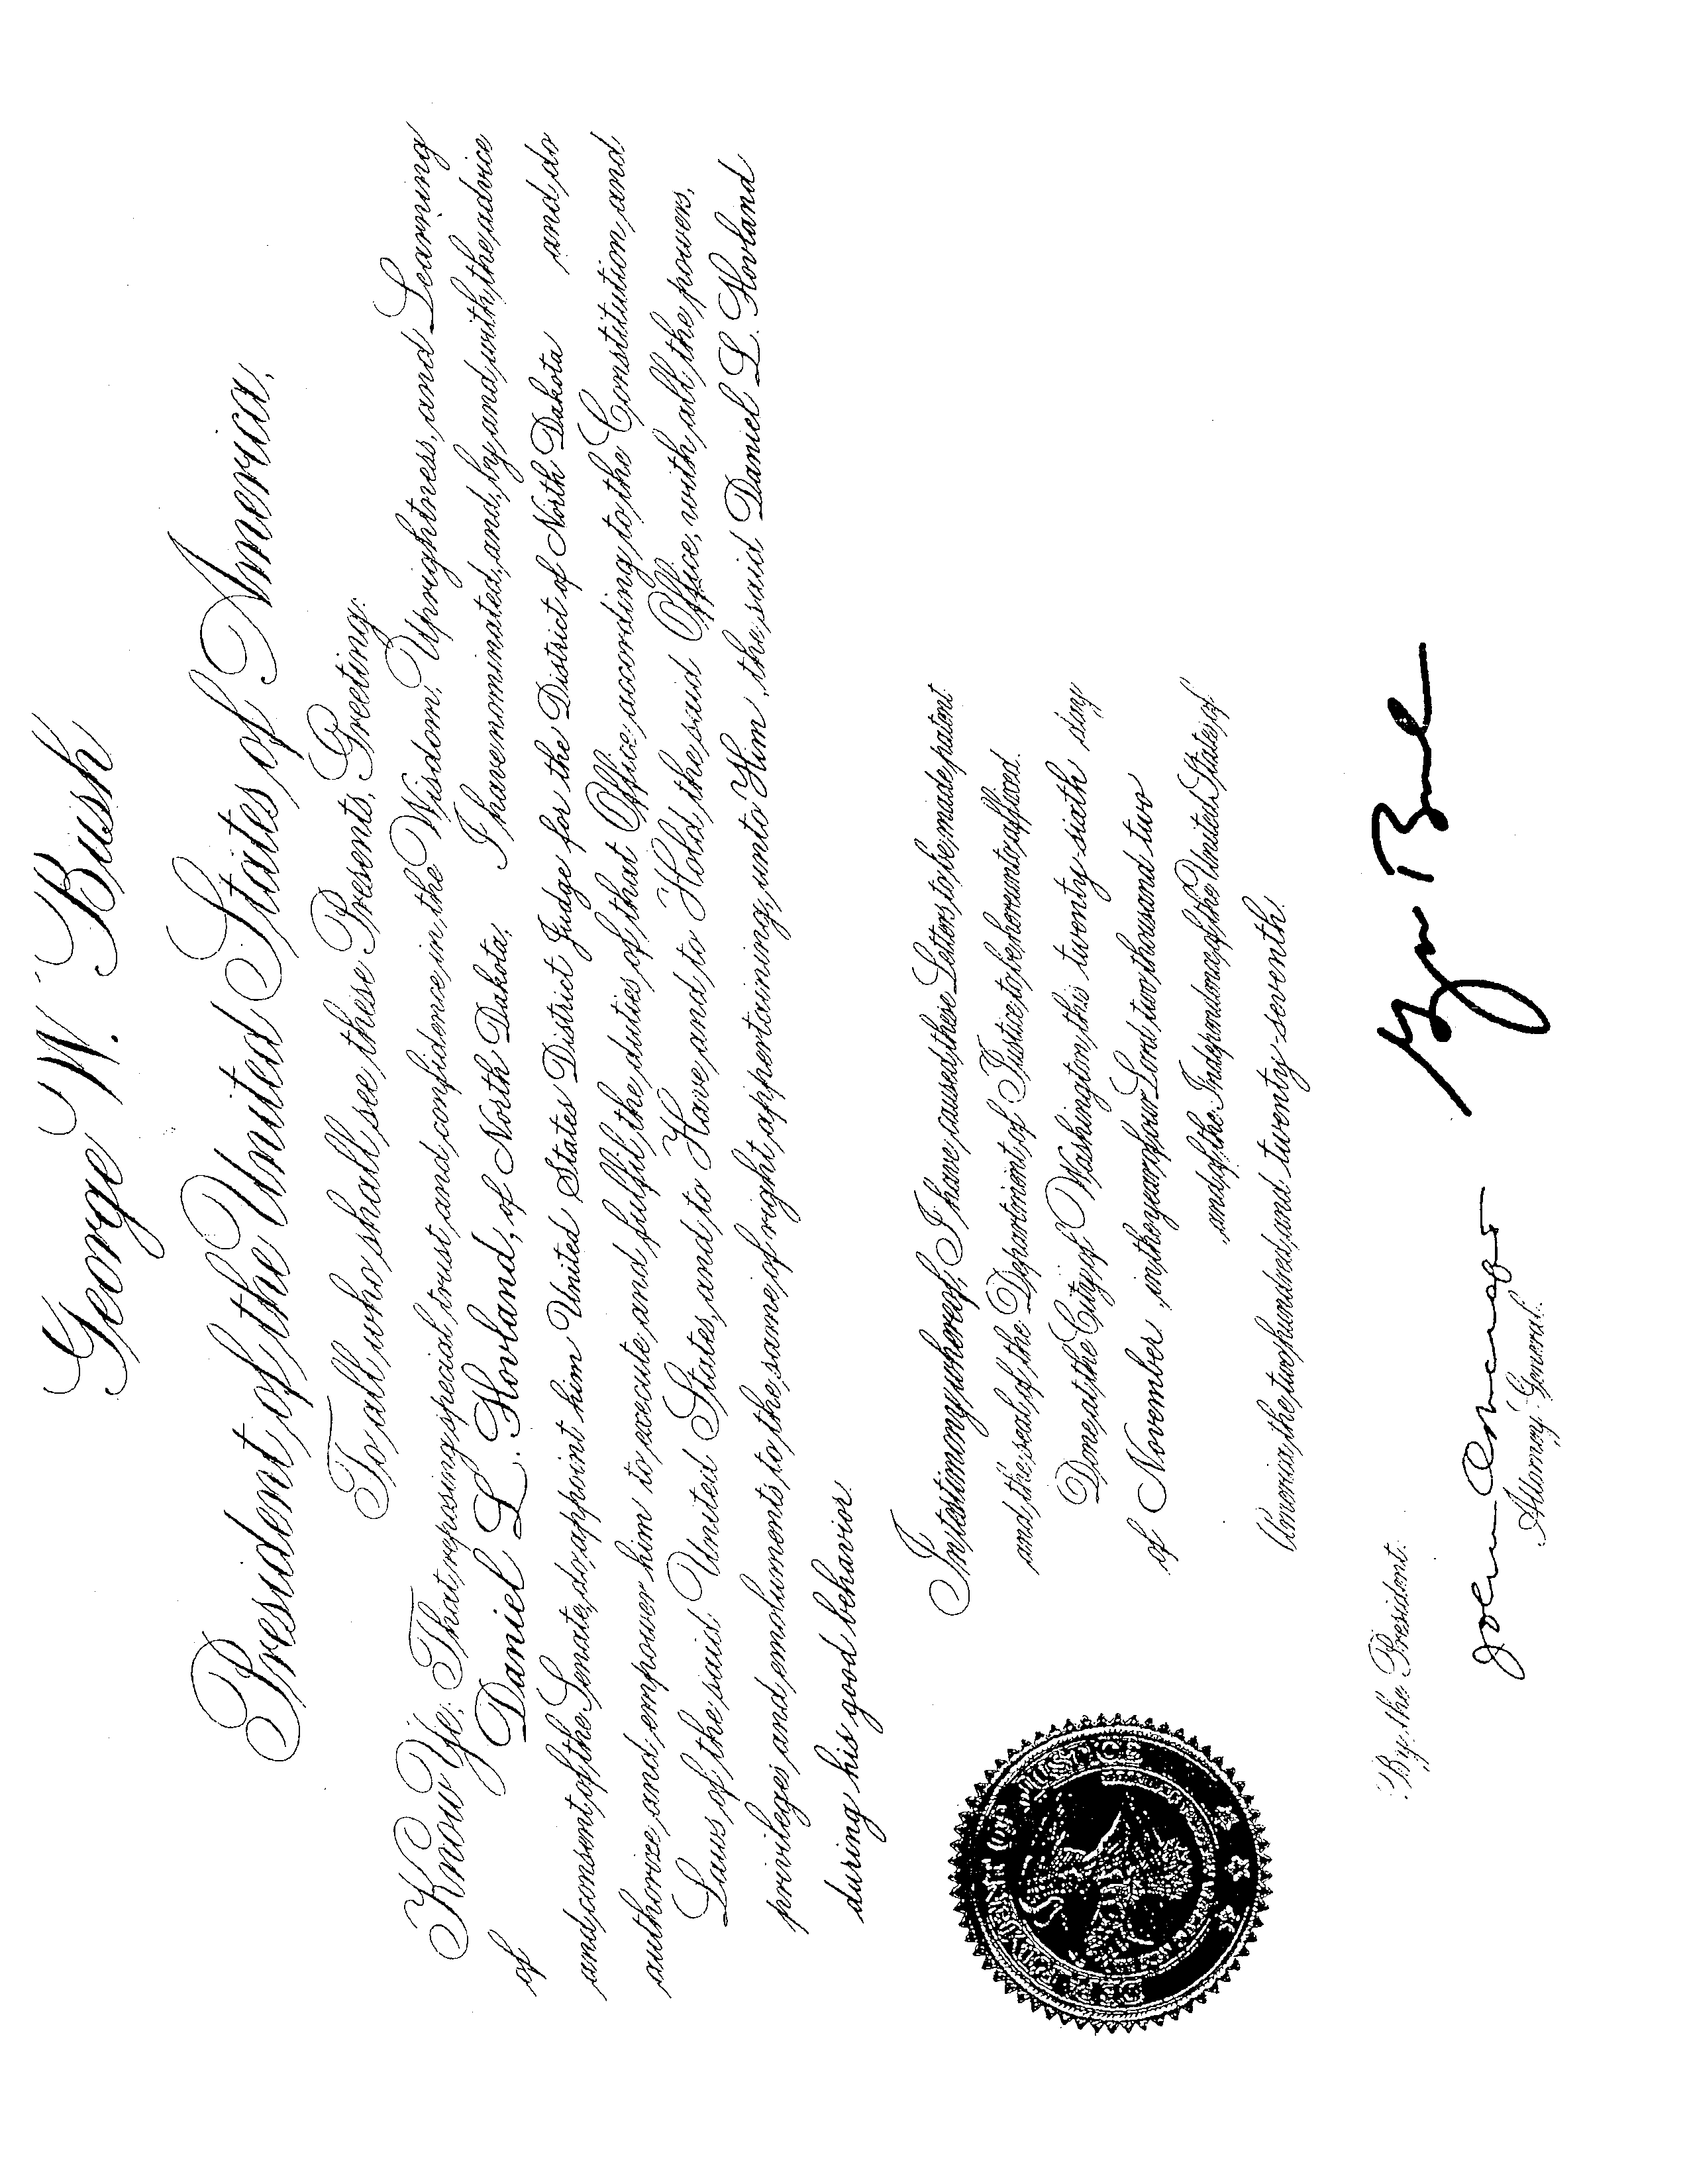 George W. Bush
President of the United States of America,
To all who shall see these Presents, Greeting:
Know Ye: That reposing special trust and confidence in the Wisdom, Uprightness, and Learning
of Daniel L. Hovland, of North Dakota, I have nominated, and, by and with the advice
and consent of the Senate, do appoint him United States District Judge for the District of North Dakota and do
authorize and empower him to execute and fulfil the duties of that Office according to the Constitution and
Laws of the said United States, and to Have and to Hold the said Office, with all the powers,
privileges and emoluments to the same of right appertaining, unto Him, the said Daniel L. Hovland
during his good behavior.
In testimony whereof, I have caused these Letters to be made patent
and the seal of the Department of Justice to be hereunto affixed.
Done at the City of Washington this twenty-sixth day
of November, in the year of our Lord two thousand two
and of the Independence of the United States of
America the two hundred and twenty-seventh.
DEPARTMENT OF JUSTICE
By the President:
John Ashcroft
Attorney General.